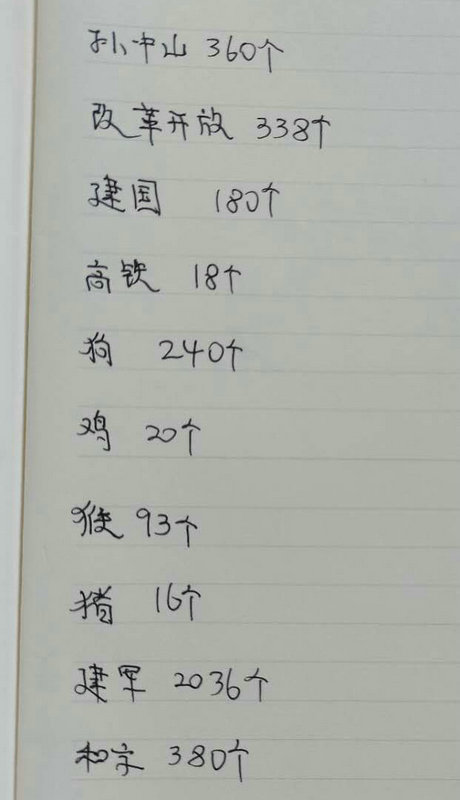 孙中山 360个
改革开放 338个
建国 180个
高铁 18个
狗 240个
鸡 20个
猴 93个
猪 16个
建军 2036个
和字 380个